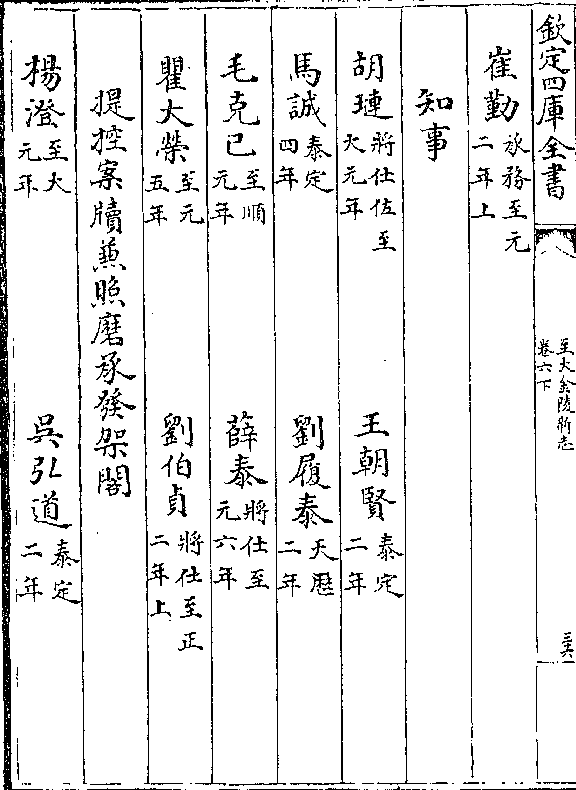 欽定四庫全書
至大金陵新志
卷六下
三六
崔勤承務至元二年上
知事
胡璉將仕佐至大元年 王朝賢泰定二年
馬誠泰定四年 劉履泰天厯二年
毛克已至順元年 薛泰將仕至元六年
瞿大榮至元五年 劉伯貞將仕至正二年上
提控案牘兼照磨承發架閣
楊澄至大元年 吳弘道泰定二年